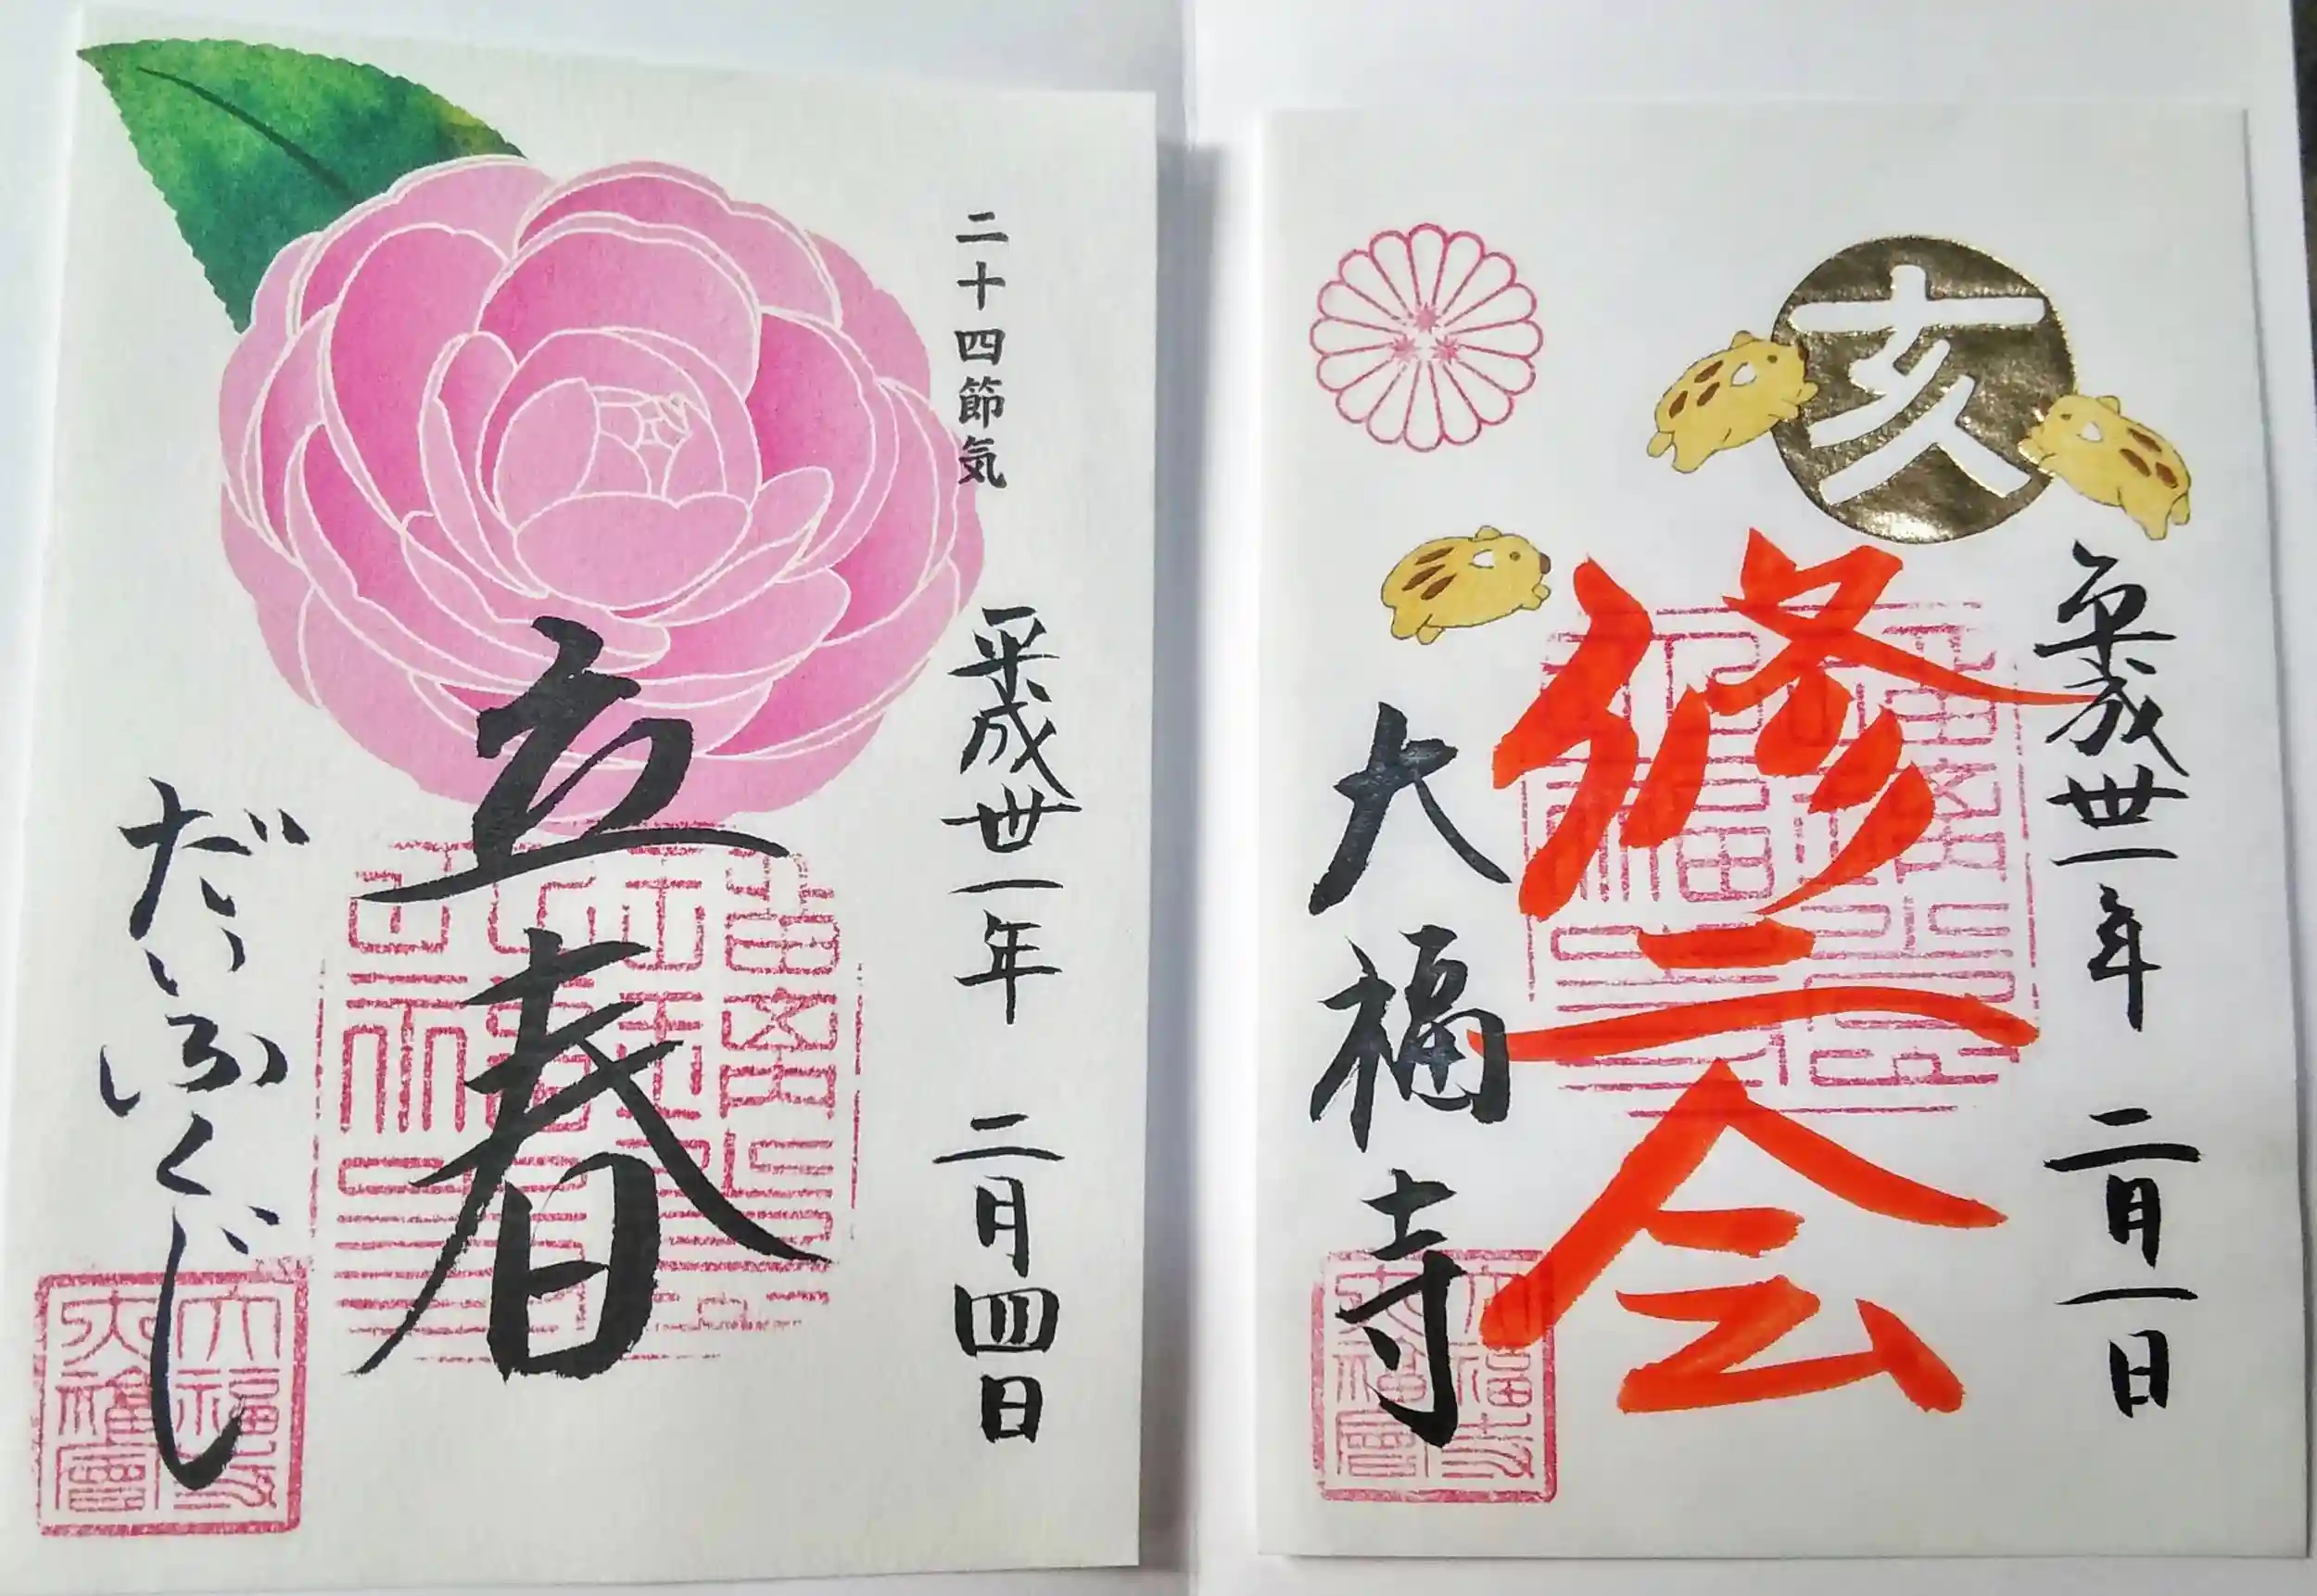 二十四節気
平成丗一年 二月四日
立春
だいふくじ
亥
平成丗一年 二月一日
修二会
大福寺